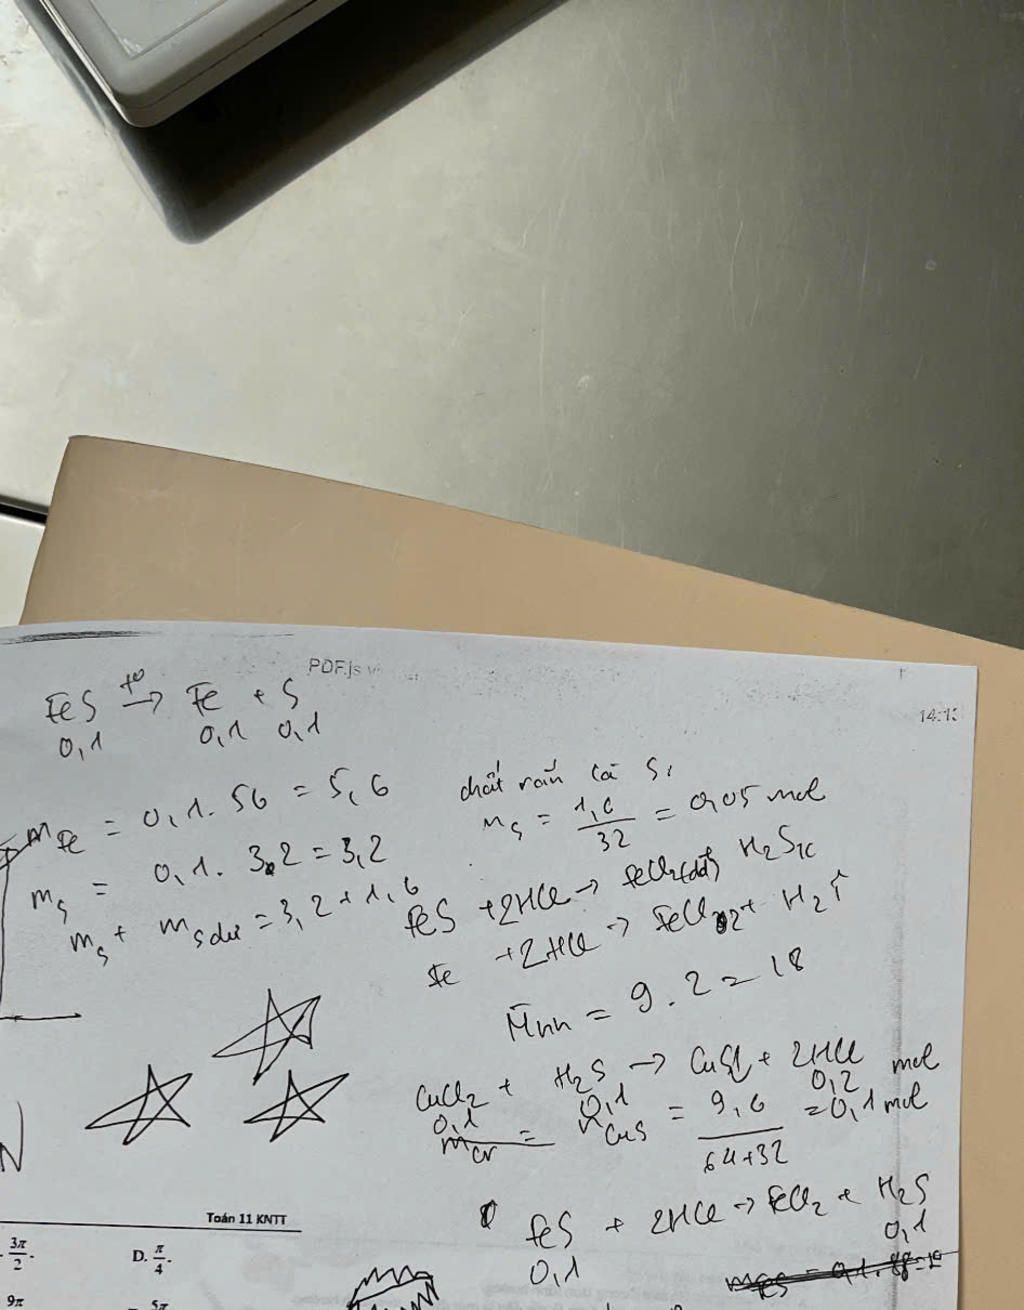 PDF.js v
14:13
FeS t° → Fe + S
0,1 0,1 0,1
mFe = 0,1. 56 = 5,6
mS = 0,1. 3.2 = 3,2
mS + mS dư = 3,2 + 1,6
chất rắn là S
nS = 1,6/32 = 0,05 mol
FeS + 2HCl → FeCl2(dd) H2S
Fe + 2HCl → FeCl2 + H2↑
M̄hh = 9.2 = 18
CuCl2 + H2S → CuS↓ + 2HCl
0,1 0,1 0,2 mol
nCuS = 9,6/64+32 = 0,1 mol
FeS + 2HCl → FeCl2 + H2S
0,1 0,1
Toán 11 KNTT
3π/2.
D. π/4.
9π
5π